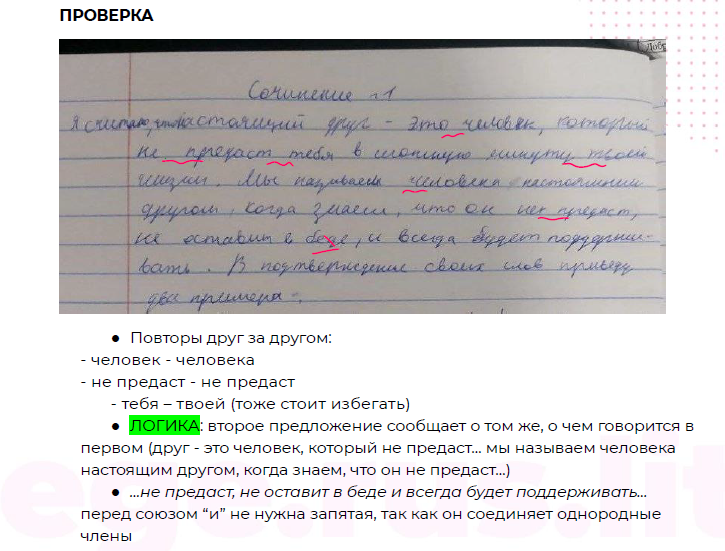 ПРОВЕРКА
Сочинение №1
Я считаю, что настоящий друг - это человек, который
не предаст тебя в сложную минуту твоей
жизни. Мы называем человека настоящим
другом, когда знаем, что он не предаст,
не оставит в беде, и всегда будет поддержи-
вать. В подтверждение своих слов приведу
два примера.
● Повторы друг за другом:
- человек - человека
- не предаст - не предаст
- тебя – твоей (тоже стоит избегать)
● ЛОГИКА: второе предложение сообщает о том же, о чем говорится в
первом (друг - это человек, который не предаст... мы называем человека
настоящим другом, когда знаем, что он не предаст...)
● ...не предаст, не оставит в беде и всегда будет поддерживать...
перед союзом “и” не нужна запятая, так как он соединяет однородные
члены